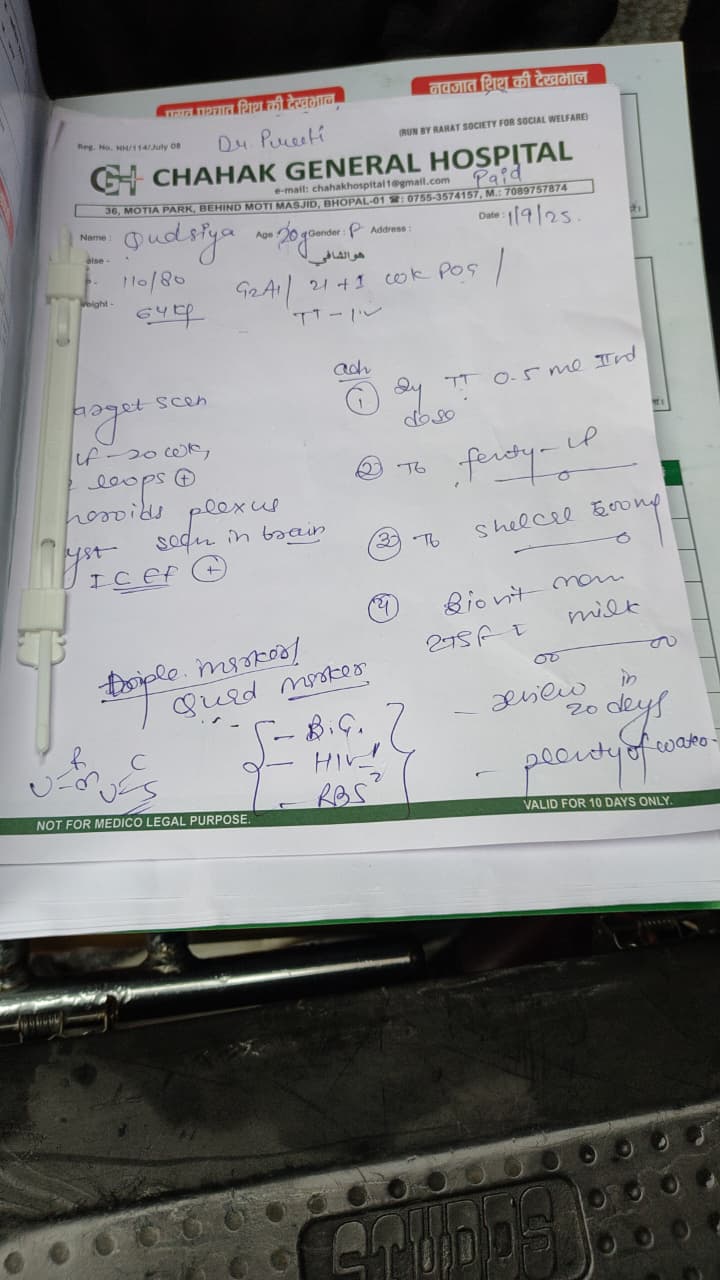 प्रसव पश्चात शिशु की देखभाल
नवजात शिशु की देखभाल
Reg. No. NH/114/July 08
Dr. Preeti
(RUN BY RAHAT SOCIETY FOR SOCIAL WELFARE)
CHAHAK GENERAL HOSPITAL
e-mail: chahakhospital1@gmail.com
Paid
36, MOTIA PARK, BEHIND MOTI MASJID, BHOPAL-01 ☎: 0755-3574157, M.: 7089757874
Name : Qudsiya Age Gender : F Address : Date : 1/9/25.
هو الشافي
110/80
G2A1 / 21+1 wk POG /
eight - 64 kg
TT - 1
adv
arget scan
① TT 0.5 ml IInd
dose
- 20 wk,
② Tb
loops ⊕
horoids plexus
③ Tb Shelcal 500mg
yst seen in brain
ICEF ⊕
④ Biovit mom
2TSF milk
Triple marker /
Quad marker
- review in
20 days
- B.G.
- HIV
- RBS
- plenty of water
U R C
S
NOT FOR MEDICO LEGAL PURPOSE.
VALID FOR 10 DAYS ONLY.
STUDDS